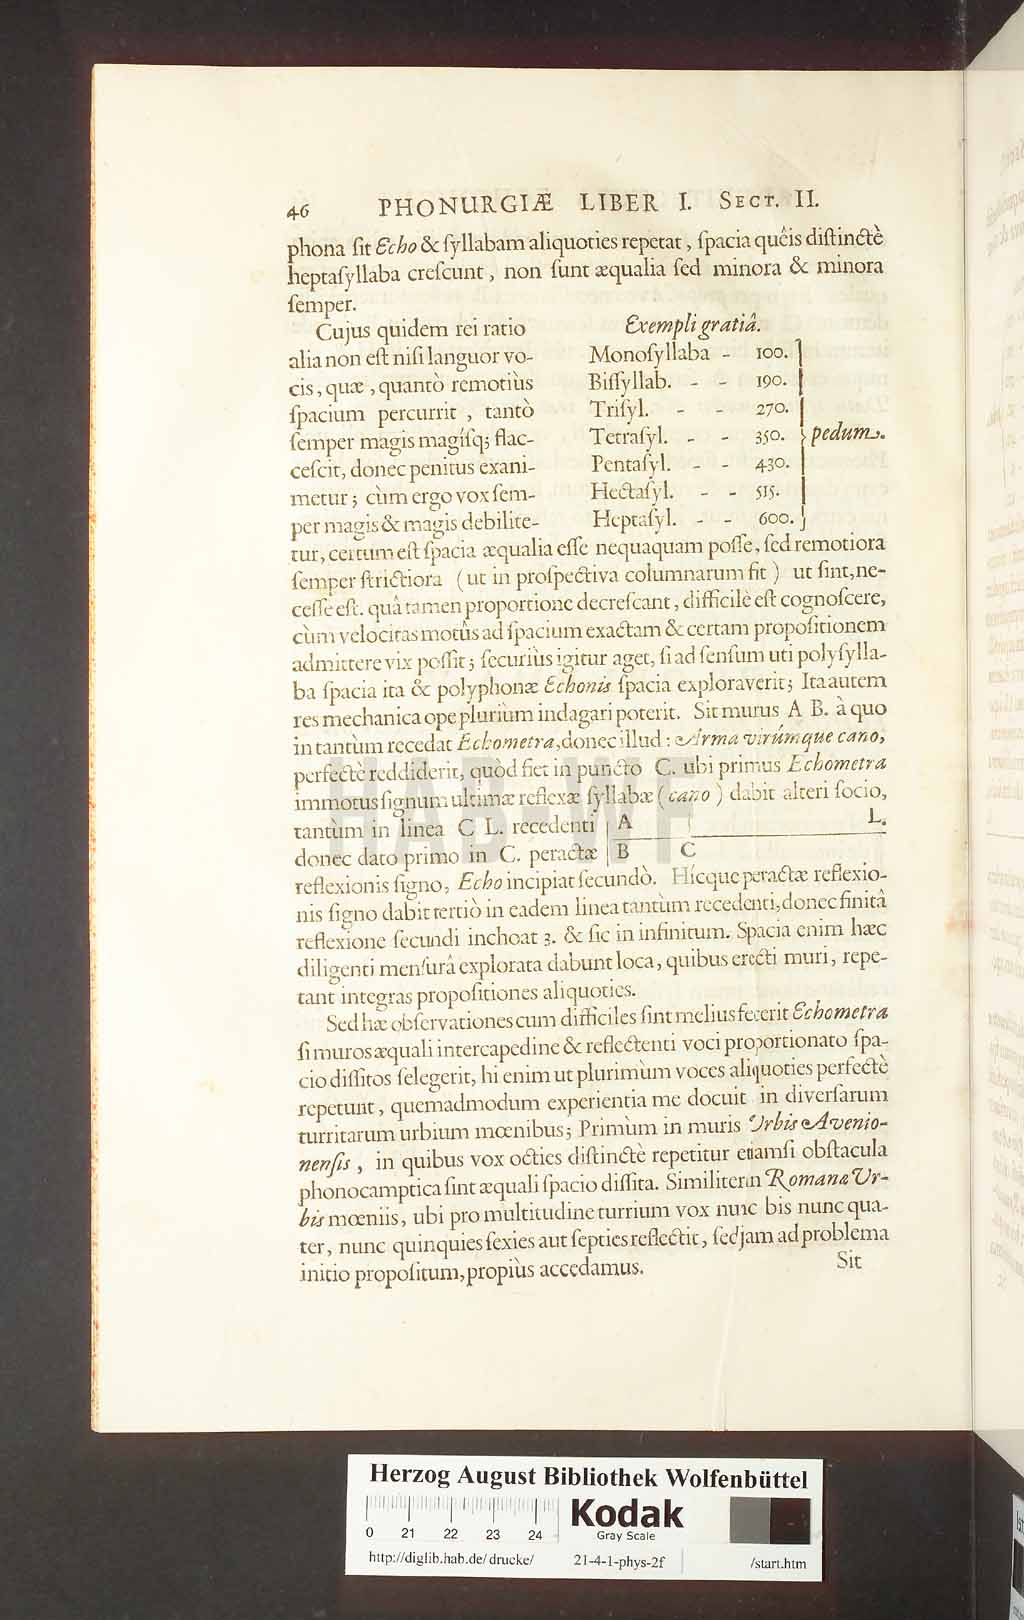 46 PHONURGIÆ LIBER I. SECT. II.
phona ſit Echo & ſyllabam aliquoties repetat, ſpacia quêis diſtinctè
heptaſyllaba creſcunt, non ſunt æqualia ſed minora & minora
ſemper.
Cujus quidem rei ratio
alia non eſt niſi languor vo-
cis, quæ, quantò remotiùs
ſpacium percurrit, tantò
ſemper magis magíſq; flac-
ceſcit, donec penitus exani-
metur; cùm ergo vox ſem-
per magis & magis debilite-
Exempli gratiâ.
Monoſyllaba - 100.
Biſſyllab. - - 190.
Triſyl. - - 270.
Tetraſyl. - - 350. pedum.
Pentaſyl. - - 430.
Hectaſyl. - - 515.
Heptaſyl. - - 600.
tur, certum eſt ſpacia æqualia eſſe nequaquam poſſe, ſed remotiora
ſemper ſtrictiora (ut in proſpectiva columnarum fit) ut ſint, ne-
ceſſe eſt. quâ tamen proportione decreſcant, difficilè eſt cognoſcere,
cùm velocitas motûs ad ſpacium exactam & certam propoſitionem
admittere vix poſſit; ſecuriùs igitur aget, ſi ad ſenſum uti polyſylla-
ba ſpacia ita & polyphonæ Echonis ſpacia exploraverit; Ita autem
res mechanica ope plurium indagari poterit. Sit murus A B. à quo
in tantùm recedat Echometra, donec illud: Arma virúmque cano,
perfectè reddiderit, quod fiet in puncto C. ubi primus Echometra
immotus ſignum ultimæ reflexæ ſyllabæ (cano) dabit alteri ſocio,
tantùm in linea C L. recedenti A L.
donec dato primo in C. peractæ B C
reflexionis ſigno, Echo incipiat ſecundò. Hicque peractæ reflexio-
nis ſigno dabit tertiò in eadem linea tantùm recedenti, donec finitâ
reflexione ſecundi inchoat 3. & ſic in infinitum. Spacia enim hæc
diligenti menſurâ explorata dabunt loca, quibus erecti muri, repe-
tant integras propoſitiones aliquoties.
Sed hæ obſervationes cum difficiles ſint melius fecerit Echometra
ſi muros æquali intercapedine & reflectenti voci proportionato ſpa-
cio diſſitos ſelegerit, hi enim ut plurimùm voces aliquoties perfectè
repetunt, quemadmodum experientia me docuit in diverſarum
turritarum urbium mœnibus; Primùm in muris Urbis Avenio-
nenſis, in quibus vox octies diſtinctè repetitur etiamſi obſtacula
phonocamptica ſint æquali ſpacio diſſita. Similiter in Romanæ Ur-
bis mœniis, ubi pro multitudine turrium vox nunc bis nunc qua-
ter, nunc quinquies ſexies aut ſepties reflectit, ſed jam ad problema
initio propoſitum, propiùs accedamus.
Sit
HAB-WF
Herzog August Bibliothek Wolfenbüttel
0 21 22 23 24 Kodak
Gray Scale
http://diglib.hab.de/drucke/ 21-4-1-phys-2f /start.htm